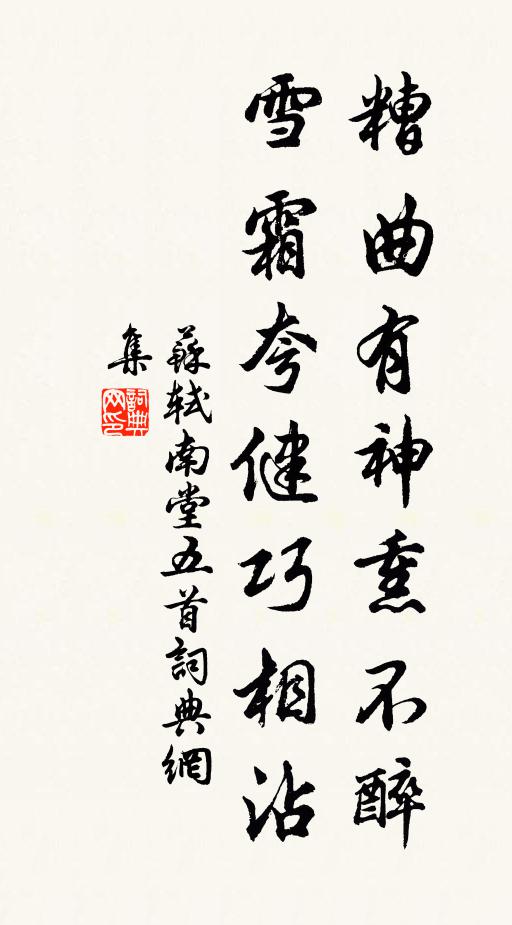 糟曲有神熏不醉
雪霜夸健巧相沾
蘇軾南堂五首詞典網
集
詞典網印